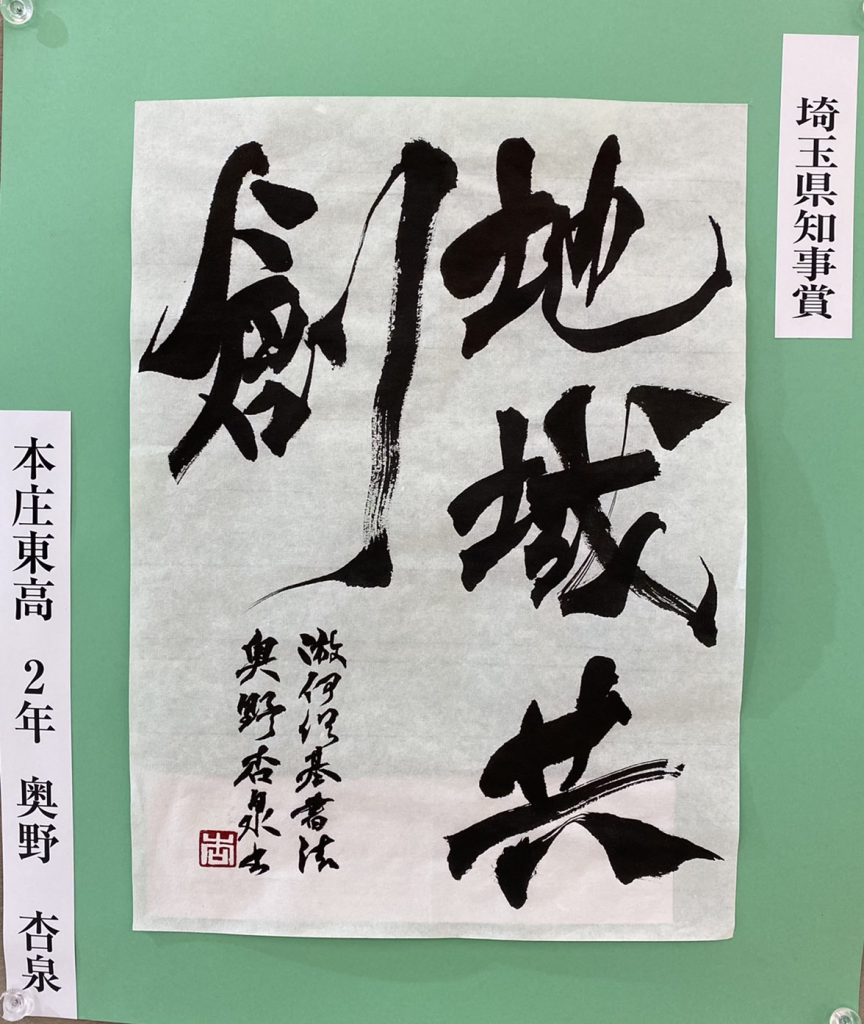 埼玉県知事賞
地域共
創
倣伊秉綬書法
奥野杏泉書
杏
本庄東高 2年 奥野 杏泉